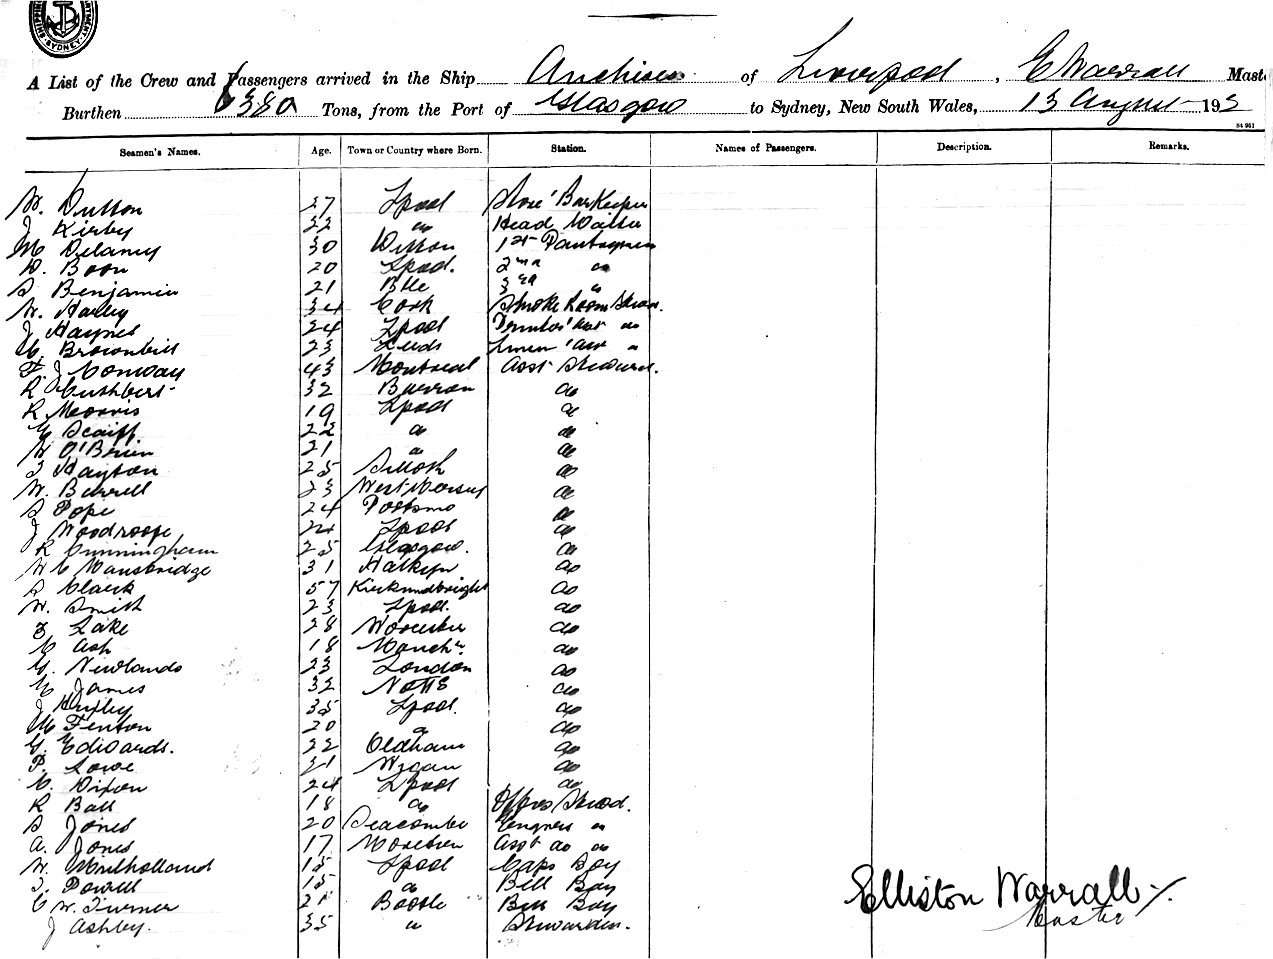 SYDNEY
A List of the Crew and Passengers arrived in the Ship Anchises of Liverpool, E Warrall Maste
Burthen 6380 Tons, from the Port of Glasgow to Sydney, New South Wales, 13 August 193
St 951
Seamen's Names. Age. Town or Country where Born. Station. Names of Passengers. Description. Remarks.
W. Dutton 27 Lpool Store' BarKeeper
J Kirby 32 do Head Waiter
M Delaney 30 1st Pantryman
D. Boon 20 Lpool. 2nd do
S. Benjamin 21 3rd do
W. Harley 34 Cork Smoke Room Stewd.
J Haynes 24 Lpool do
C. Brownbill 23 Leeds Linen' Asst do
F. J Conway 43 Montreal Asst Steward.
R Cuthbert 32 Barrow do
R Morris 19 Lpool do
G Scaiff 22 do do
W O'Brien 21 do do
T Hayton 25 Silloth do
W. Burrell 23 West Mersey do
S Pope 24 Portsmo do
J Woodroofe 24 Lpool do
R Cunningham 25 Glasgow. do
W C Mansbridge 31 Halkyn do
S Clark 57 Kirkcudbright do
W. Smith 23 Lpool. do
F Lake 28 Worcester do
C Ash 18 Manchr. do
G. Newlands 23 London do
E James 32 Notts do
J Huxley 35 Lpool. do
M Fenton 20 do do
G. Edwards. 22 Oldham do
P. Lowe 21 Wigan do
C. Dixon 24 Lpool do
R Ball 18 do Offrs Stewd.
S Jones 20 Seacombe Engnrs do
A. Jones 17 Moreton Asst do do
W. Mulholland 15 Lpool Capts Boy
T. Powell 15 do Bell Boy
C W. Turner 21 Bootle Bell Boy
J Ashley. 35 do Stewardess.
Elliston Warrall
Master